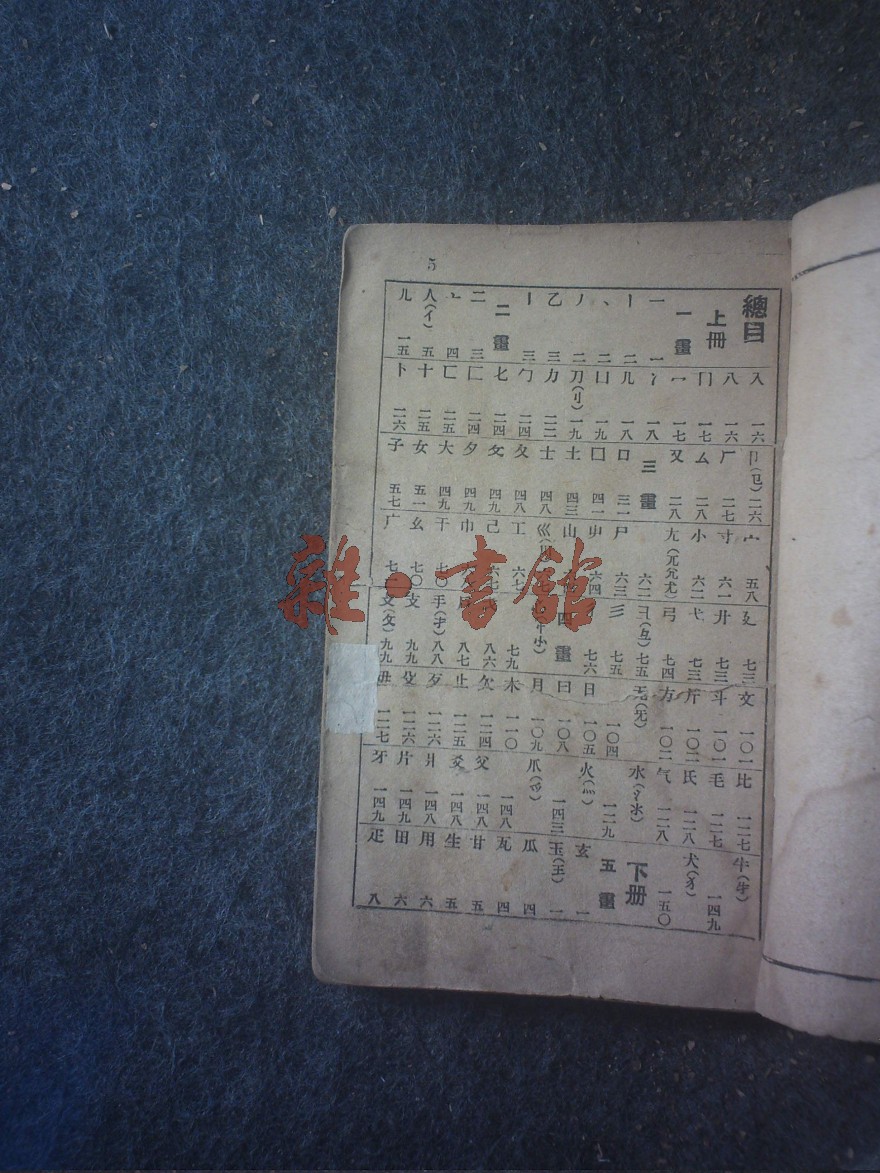 5
總目
上冊
一畫
一 一
丨 二
丶 二
丿 二
乙 三
亅 三
二畫
二 三
亠 四
人(亻) 五
儿 一五
入 一六
八 一六
冂 一七
冖 一七
冫 一八
几 一八
凵 一九
刀(刂) 一九
力 二二
勹 二四
匕 二四
匚 二四
匸 二五
十 二五
卜 二六
卩(㔾) 二六
厂 二七
厶 二八
又 二八
三畫
口 三一
囗 四一
土 四三
士 四八
夂 四八
夊 四九
夕 四九
大 四九
女 五一
子 五七
宀 五八
寸 六一
小 六二
尢(兀尣尤) 六二
尸 六三
屮 六四
山
巛
工 六七
己 六七
巾
干 七〇
幺 七〇
广
廴 七三
廾 七三
弋 七三
弓 七四
彐(彑) 七五
彡 七五
七六
四畫
七九
八六
八七
手(扌) 八八
支 九九
攴(攵) 九九
文 一〇一
斗 一〇一
斤 一〇二
方 一〇二
无(旡) 一〇四
日 一〇五
曰 一〇八
月 一〇九
木 一一〇
欠 一二四
止 一二五
歹 一二六
殳 一二六
一二七
比 一二七
毛 一二七
氏 一二八
气 一二八
水(氵氺) 一二九
火(灬) 一四三
爪(爫) 一四八
父 一四八
爻 一四八
爿 一四八
片 一四九
牙 一四九
牛(牜) 一四九
犬(犭) 一五〇
下册
五畫
玄 一
玉(王) 一
瓜 四
瓦 四
甘 五
生 五
用 六
田 六
疋 八
雜·書館